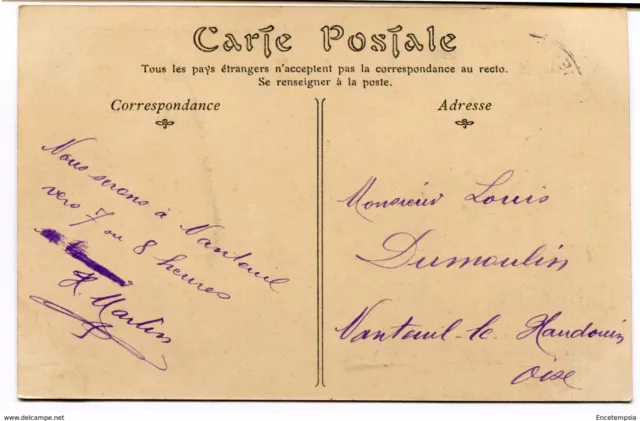 Carte Postale
Tous les pays étrangers n'acceptent pas la correspondance au recto.
Se renseigner à la poste.
Correspondance
Adresse
Nous serons à Nanteuil
vers 7 ou 8 heures
H. Martin
Monsieur Louis
Dumoulin
Nanteuil-le-Haudouin
Oise
www.delcampe.net
Encetempsla